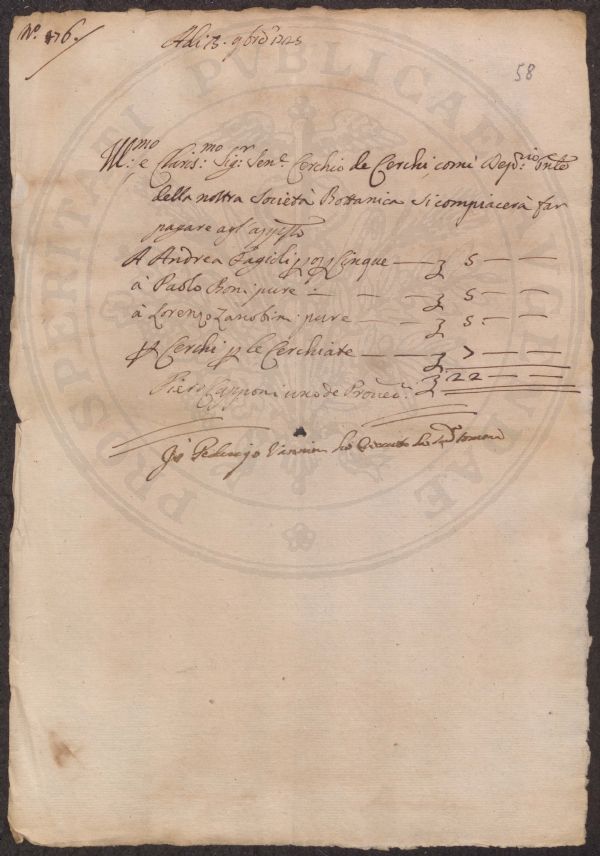 N.º 176.
Adi 13. 9bre 1725
58
Ill.mo e Claris.mo Sig.r Sen.e Cerchio de Cerchi, come Dep.rio
della nostra Società Bottanica Si compiacerà far
pagare agl'app.ti
A Andrea Cinque — 5 — —
à Paolo Boni pure — — 5 — —
à Lorenzo Zanobini pure — 5 — —
p Cerchi p le Cerchiate — 7 — —
22 — —
Piero Capponi uno de Proved.ri
Io Vannini ho
PROSPERITATI PUBLICAE